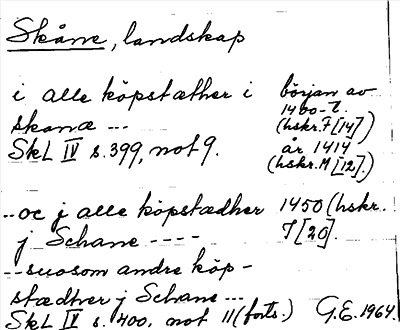 Skåne, landskap
i alle köpstæther i början av
skonæ --- 1400-t.
(hskr. F[14])
SkL IV s. 399, not 9. år 1414
(hskr. M[12].)
--oc j alle köpstædher 1450 (hskr.
j Schane ---- I[20].
--suosom andre köp-
stædher j Schane ---
SkL IV s. 400, not 11 (forts.) G.E. 1964.